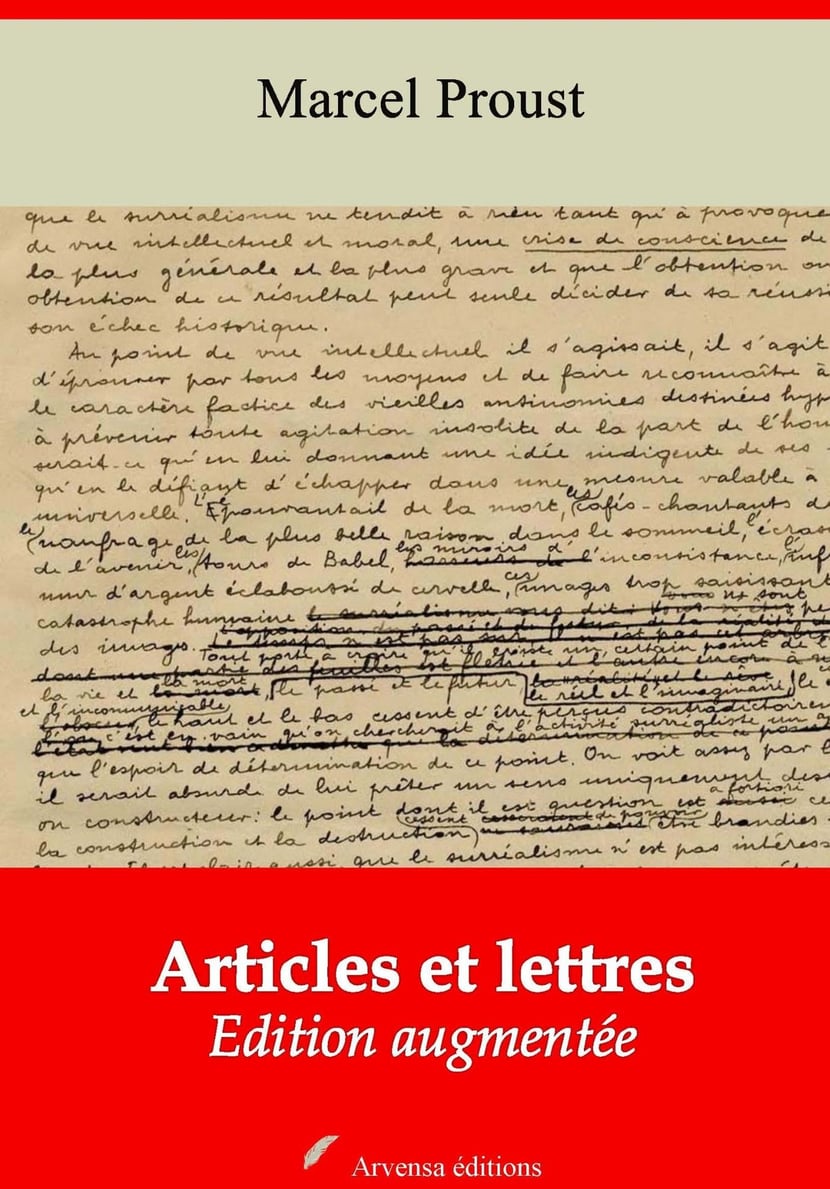 Marcel Proust
que le surréalisme ne tendit à rien tant qu'à provoque
de vue intellectuel et moral, une crise de conscience de
la plus générale et la plus grave et que l'obtention ou
obtention de ce résultat peut seule décider de sa réussi
son échec historique.
Au point de vue intellectuel il s'agissait, il s'agit
d'éprouver par tous les moyens et de faire reconnaître à
le caractère factice des vieilles antinomies destinées hyp
à prévenir toute agitation insolite de la part de l'hom
serait-ce qu'en lui donnant une idée indigente de ses
qu'en le défiant d'échapper dans une mesure valable à
universelle. L'épouvantail de la mort, les cafés-chantants d
le naufrage de la plus belle raison dans le sommeil, l'écras
de l'avenir, les tours de Babel, les miroirs d'inconsistance, l'inf
mur d'argent éclaboussé de cervelle, ces images trop saisissant
catastrophe humaine le surréalisme ne sont
des images.
Tout porte à croire qu'il existe un certain point de l'
la vie et la mort, le passé et le futur,
le réel et l'imaginaire, le
et l'incommunicable
le haut et le bas cessent d'être perçus contradictoirem
c'est en vain qu'on chercherait à l'activité surréaliste un a
que l'espoir de détermination de ce point. On voit assez par l
il serait absurde de lui prêter un sens uniquement des
ou constructeur: le point dont il est question est a fortiori ce
la construction et la destruction cessent de pouvoir être brandies
que le surréalisme n'est pas intéress
Articles et lettres
Edition augmentée
Arvensa éditions